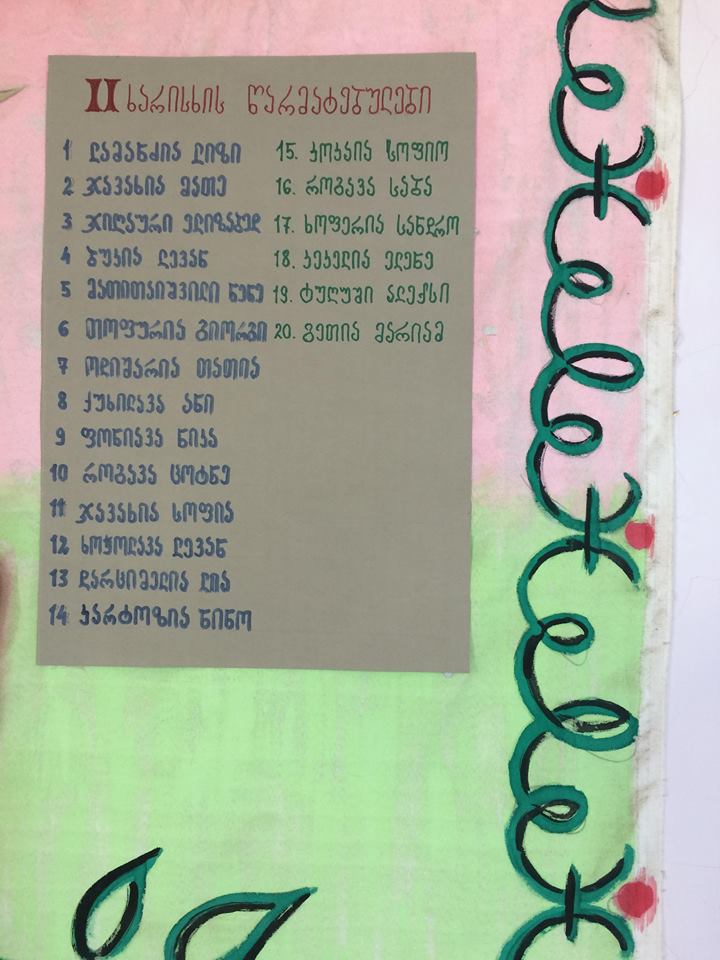 II ხარისხის წარმატებულები
1 ლამანძია ლიზი
2 ჯავახია მათე
3 ჯიღაური ელიზაბედ
4 ბუკია ლევან
5 მათითაიშვილი ნენე
6 თოფურია გიორგი
7 ოდიშარია თათია
8 ქუხილავა ანი
9 ფონიავა ნიკა
10 როგავა ცოტნე
11 ჯავახია სოფია
12 ხოჭოლავა ლევან
13 ღარციმელია ლია
14 კარტოზია ნინო
15. კოკაია სოფიო
16. როგავა საბა
17. ხოფერია სანდრო
18. კეკელია ელენე
19. ტუღუში ალექსი
20. გეთია მარიამ